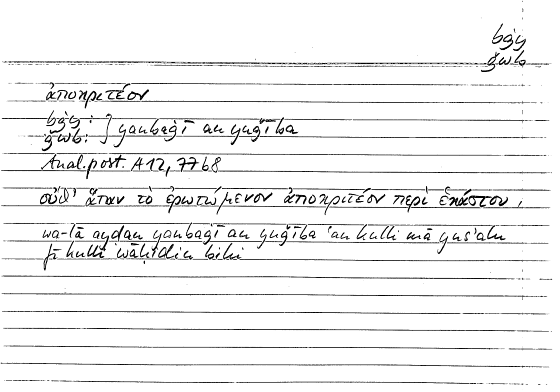 bġy
ǧwb
ἀποκριτέον
bġy:
ǧwb: } yanbaġī an yuǧība
Anal. post. A 12, 77b8
οὔθ’ ἅπαν τὸ ἐρωτώμενον ἀποκριτέον περὶ ἑκάστου,
wa-lā ayḍan yanbaġī an yuǧība ʿan kulli mā yusʾalu
fī kulli wāḥidin bihi